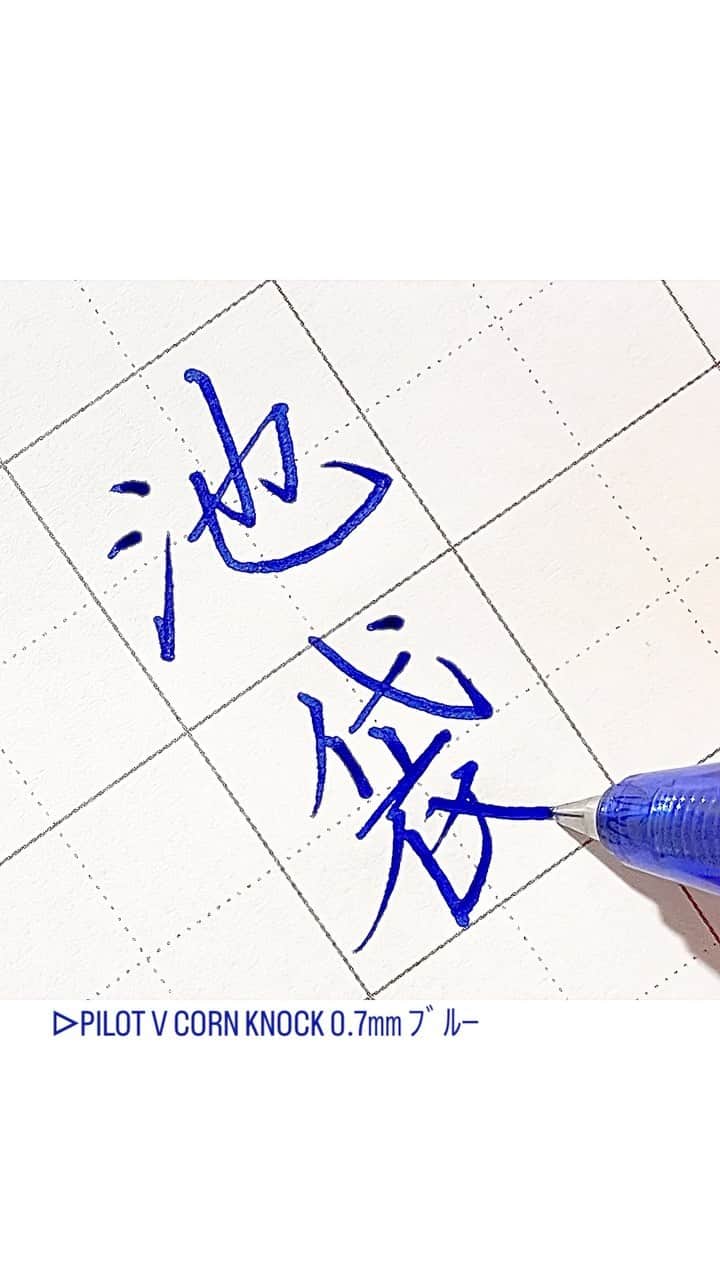 池袋
▷PILOT V CORN KNOCK 0.7㎜ ブルー